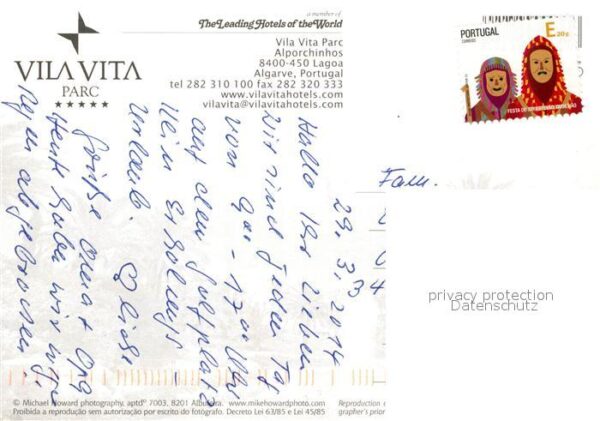 a member of
The Leading Hotels of the World
VILA VITA
PARC
Vila Vita Parc
Alporchinhos
8400-450 Lagoa
Algarve, Portugal
tel 282 310 100 fax 282 320 333
www.vilavitahotels.com
vilavita@vilavitahotels.com
PORTUGAL
CORREIOS
E 20g
29.3.2014
Hallo Ihr Lieben
Wir sind jeden Tag
von 9 00 - 17 00 Uhr
auf dem Golfplatz
Kein Erholungs-
Urlaub. Liebe
Grüße Oma + Opa
Heute haben wir wg.
Regen abgebrochen.
Fam.
privacy protection
Datenschutz
© Michael Howard photography, aptdº 7003, 8201 Albufeira. www.mikehowardphoto.com
Proibida a reprodução sem autorização por escrito do fotógrafo. Decreto Lei 63/85 e Lei 45/85
Reproduction
grapher's prior